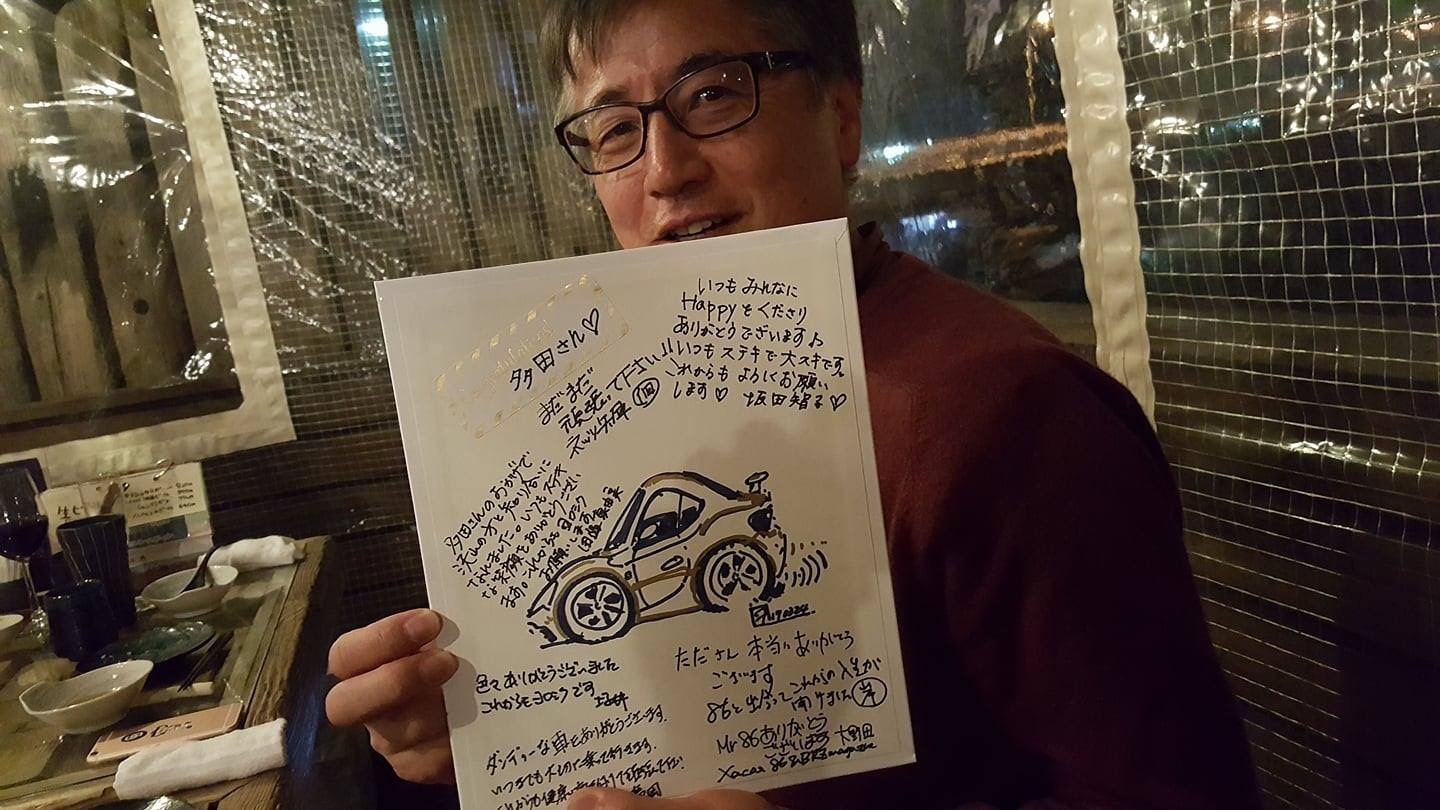 Congratulations!
多田さん♡
いつも みんなに
Happyをくださり
ありがとうございます♪
いつもステキで大スキです
これからも よろしくお願い
します♡ 坂田智子♡
まだまだ
頑張って下さい!!
多田さんのおかげで
沢山の方と知り合いに
なれました。いつもステキ
な笑顔をありがとうござい
ます。これからもヨロシク
お願いします
色々ありがとうございました
これからもヨロシクです
ただサん 本当にありがとう
ございます
86と出会って これからの人生が
開けました
Mr 86 ありがとう
ございます 大野田
Xacar 86&BRZ magazine
ダンディーな車をありがとうございます。
いつまでも大切に乗って行きます。
生ビ